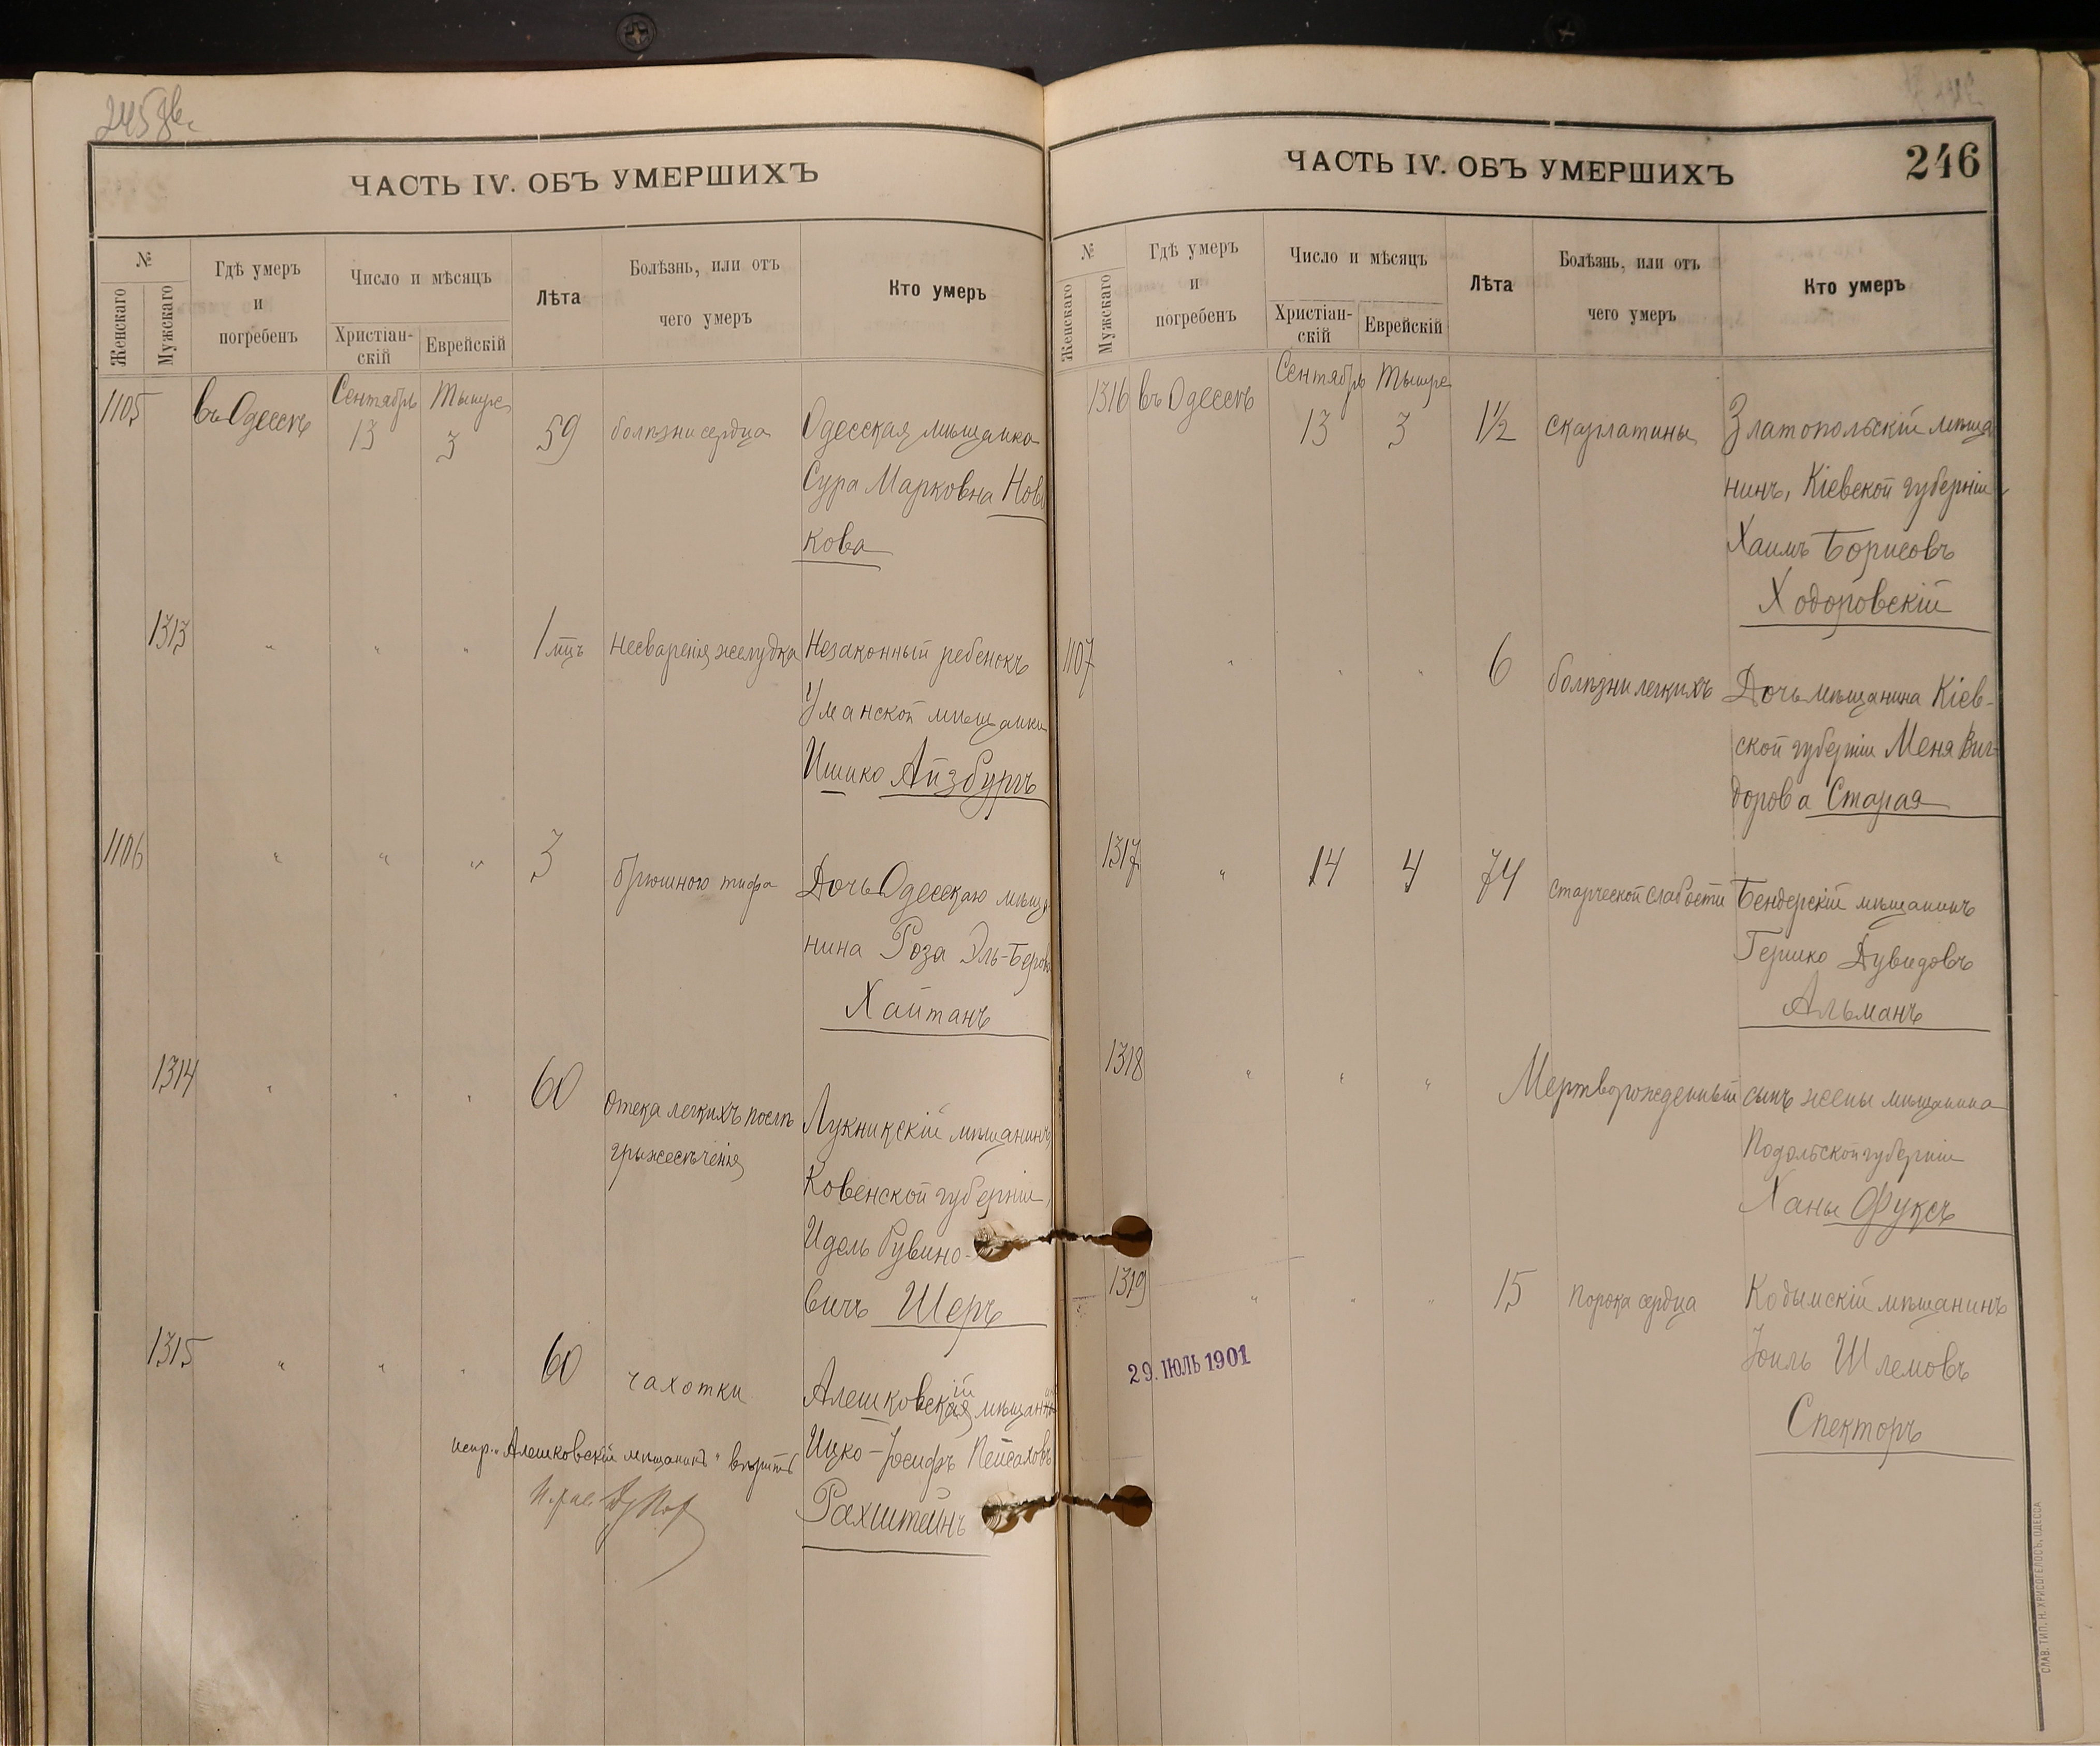 ЧАСТЬ IV. ОБЪ УМЕРШИХЪ
№
Женскаго
Мужскаго
Гдѣ умеръ
и
погребенъ
Число и мѣсяцъ
Христіан-
скій
Еврейскій
Лѣта
Болѣзнь, или отъ
чего умеръ
Кто умеръ
1105 въ Одессѣ Сентябрь 13 Тышре 3 59 болѣзни сердца Одесская мѣщанка
Сура Марковна Нови
кова
1313 " " " 1 мцъ несваренія желудка Незаконный ребенокъ
Уманской мѣщанки
Ицико Айзбургъ
1106 " " " 3 брюшного тифа Дочь Одесскаго мѣща
нина Роза Эль-Берова
Хайтанъ
1314 " " " 60 отека легкихъ послѣ Лукникскій мѣщанинъ
грыжесѣченія
Ковенской губерніи,
Идель Рувино-
вичъ Шеръ
1315 " " " 60 чахотки Алешковская мѣщан
ій
испр. "Алешковскій мѣщанинъ" вѣрить
Ицко-Іосифъ Пейсаховъ
Рахштейнъ
ЧАСТЬ IV. ОБЪ УМЕРШИХЪ
246
№
Женскаго
Мужскаго
Гдѣ умеръ
и
погребенъ
Число и мѣсяцъ
Христіан-
скій
Еврейскій
Лѣта
Болѣзнь, или отъ
чего умеръ
Кто умеръ
1316 въ Одессѣ Сентябрь 13 Тышре 3 1½ скарлатины Златопольскій мѣща
нинъ, Кіевской губерніи
Хаимъ Борисовъ
Ходоровскій
1107 " " " 6 болѣзни легкихъ Дочь мѣщанина Кіев-
ской губерніи Меня Виг-
дорова Старая
1317 " 14 4 74 старческой слабости Бендерскій мѣщанинъ
Гершко Дувидовъ
Альманъ
1318 " " " Мертворожденный сынъ жены мѣщанина
Подольской губерніи
Ханы Фуксъ
1319 " " " 15 порока сердца Кодымскій мѣщанинъ
Іоиль Шлемовъ
Спекторъ
29. ІЮЛЬ 1901
СЛАВ. ТИП. Н. ХРИСОГЕЛОСЪ, ОДЕССА